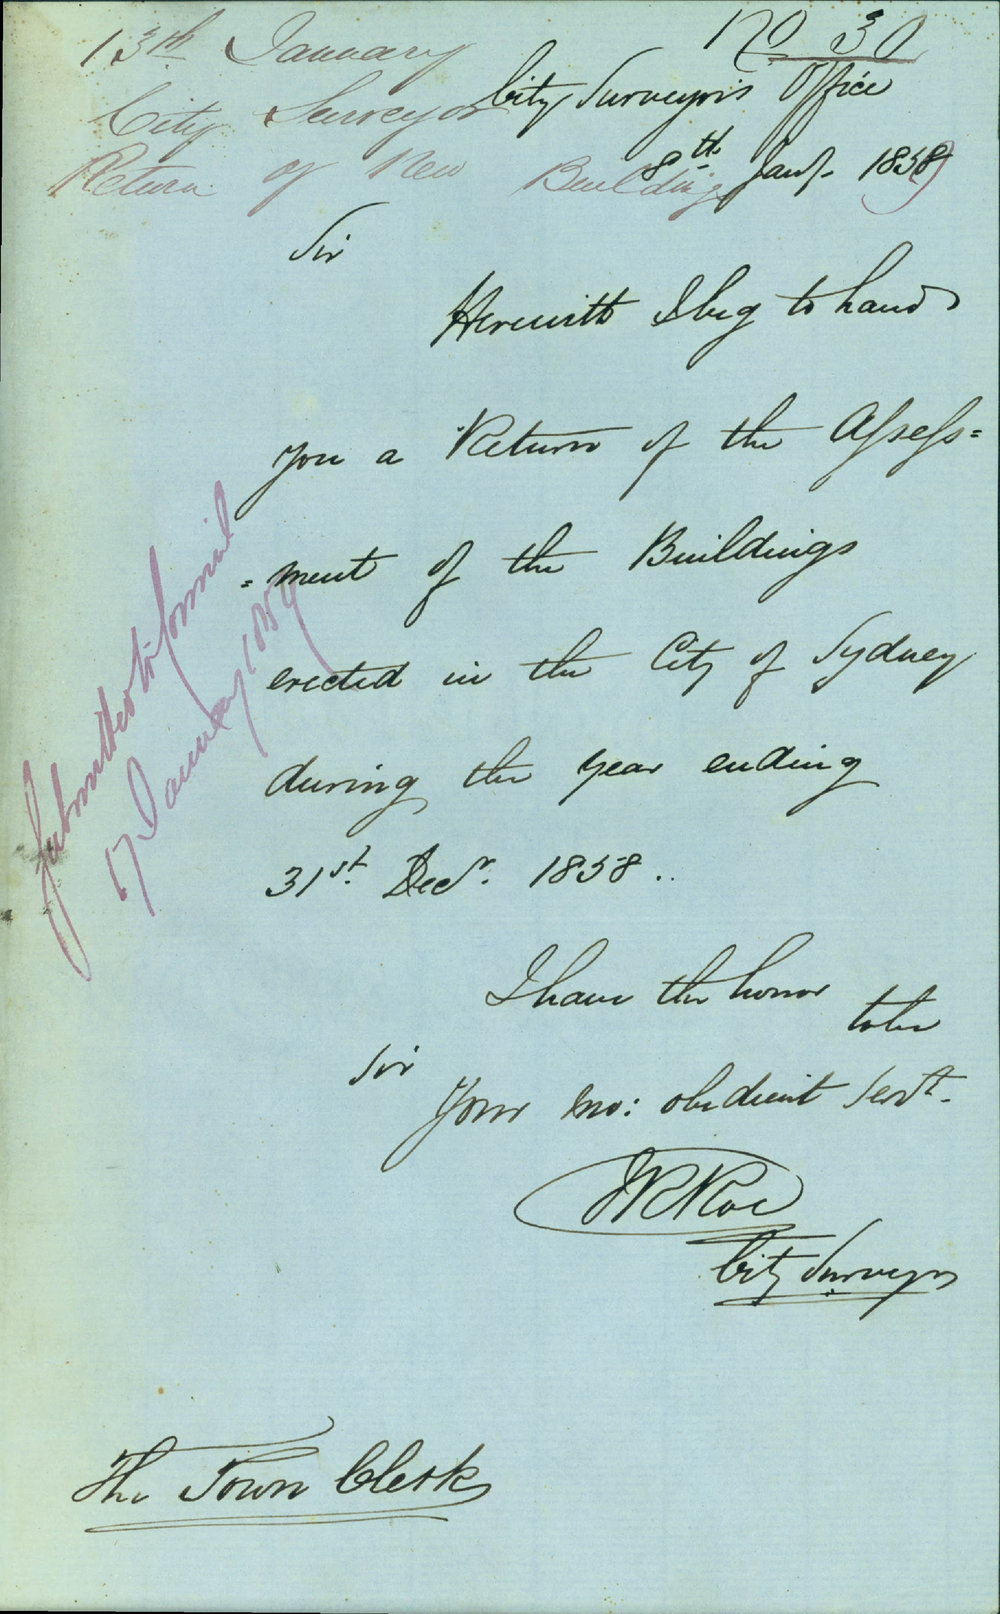 13th January
No 30
City Surveyor
City Surveyor's Office
Return of New Buildings
8th Jany. 1858
Sir
Herewith I beg to hand
you a Return of the Assess=
=ment of the Buildings
erected in the City of Sydney
during the year ending
31st. Decr. 1858..
I have the honor
to be
Sir
Your mo: obedient Servt.
WRRoe
City Surveyor
The Town Clerk
Submitted to Council
17 January 1859